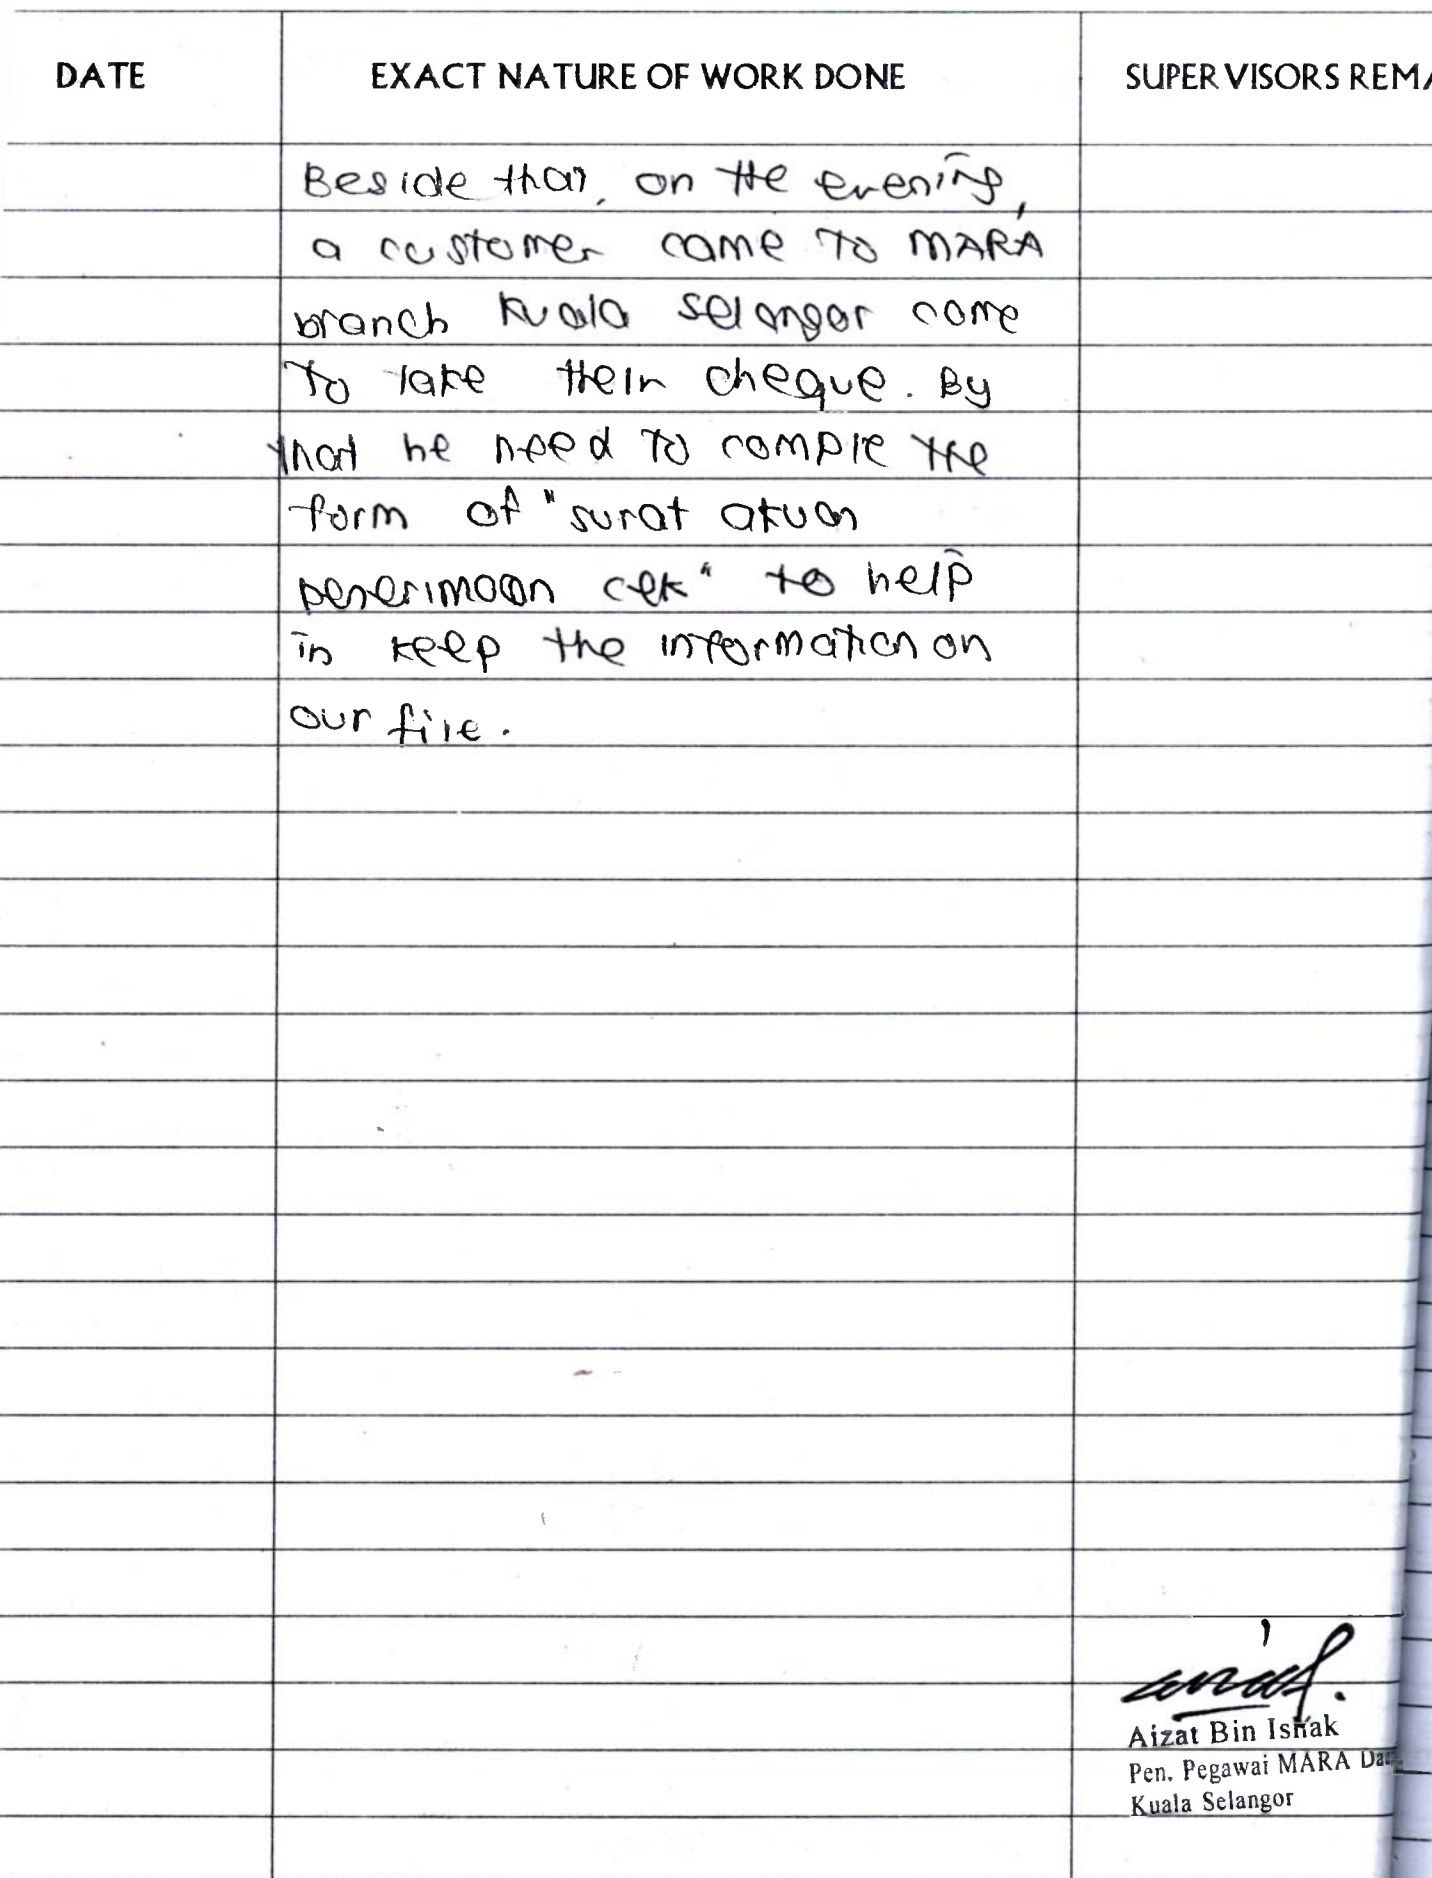 DATE EXACT NATURE OF WORK DONE SUPERVISORS REMA
Beside that, on the evening,
a customer came to MARA
branch Kuala Selangor come
to take their cheque. By
that he need to comple the
form of "surat akuan
penerimaan cek" to help
in keep the information on
our file.
Aizat Bin Ishak
Pen. Pegawai MARA Dae
Kuala Selangor